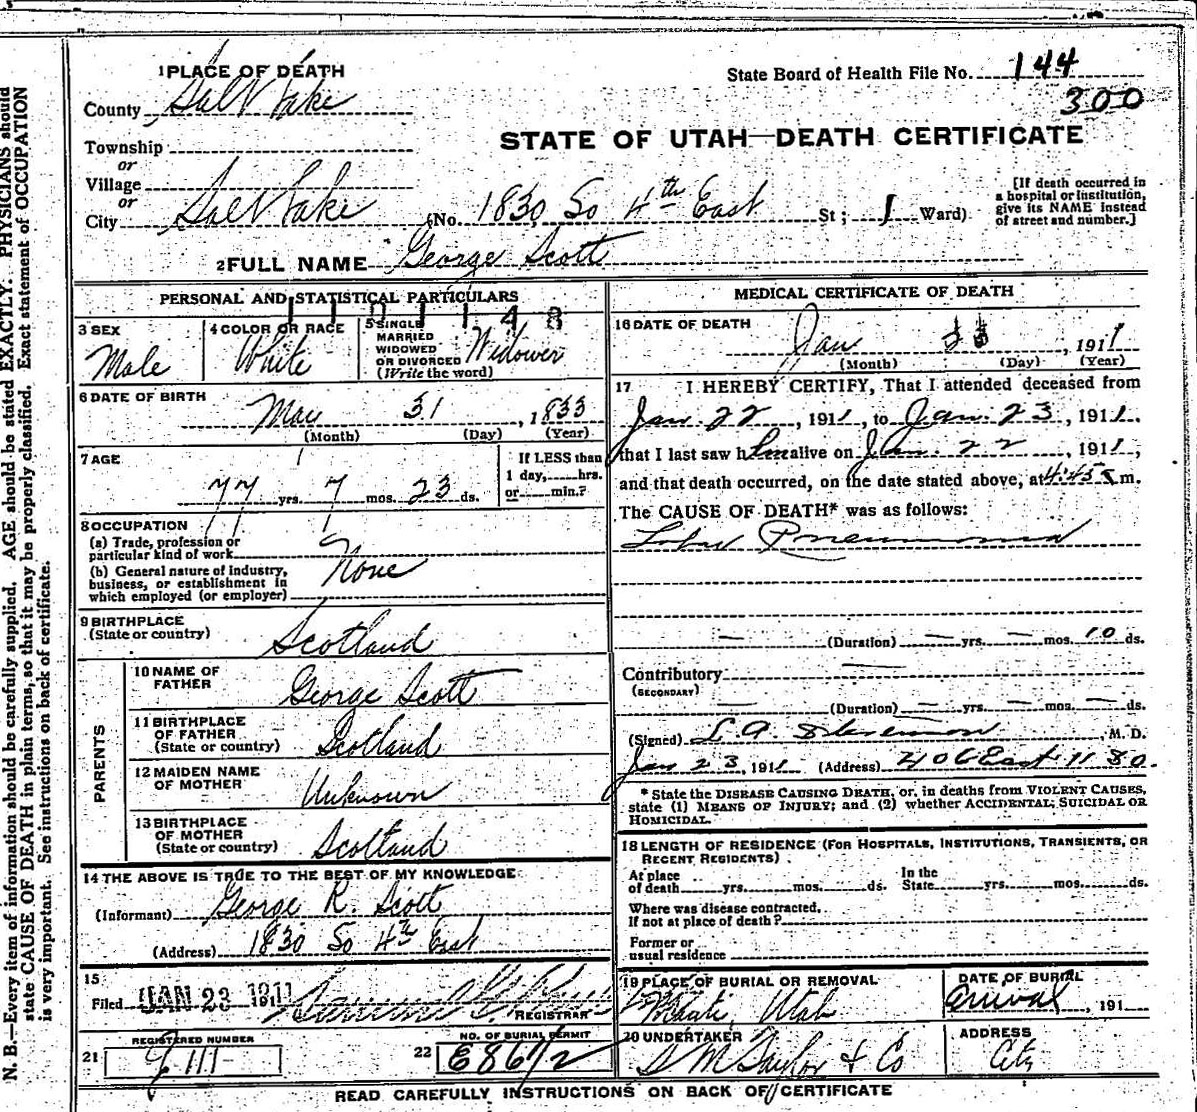 N. B.—Every item of information should be carefully supplied. AGE should be stated EXACTLY. PHYSICIANS should
state CAUSE OF DEATH in plain terms, so that it may be properly classified. Exact statement of OCCUPATION
is very important. See instructions on back of certificate.
1 PLACE OF DEATH
State Board of Health File No. 144
300
County Salt Lake
STATE OF UTAH—DEATH CERTIFICATE
Township
or
Village
or
City Salt Lake (No. 1830 So 4th East St; 1 Ward)
[If death occurred in
a hospital or institution,
give its NAME instead
of street and number.]
2 FULL NAME George Scott
PERSONAL AND STATISTICAL PARTICULARS
3 SEX
Male
4 COLOR OR RACE
White
5 SINGLE
MARRIED
WIDOWED
OR DIVORCED
(Write the word)
Widower
6 DATE OF BIRTH
May 31, 1833
(Month) (Day) (Year)
7 AGE
77 yrs. 7 mos. 23 ds.
If LESS than
1 day, hrs.
or min.?
8 OCCUPATION
(a) Trade, profession or
particular kind of work
(b) General nature of industry,
business, or establishment in
which employed (or employer)
None
9 BIRTHPLACE
(State or country)
Scotland
PARENTS
10 NAME OF
FATHER
George Scott
11 BIRTHPLACE
OF FATHER
(State or country)
Scotland
12 MAIDEN NAME
OF MOTHER
Unknown
13 BIRTHPLACE
OF MOTHER
(State or country)
Scotland
14 THE ABOVE IS TRUE TO THE BEST OF MY KNOWLEDGE
(Informant) George R. Scott
(Address) 1830 So 4th East
15
Filed JAN 23 1911
REGISTRAR
21
REGISTERED NUMBER
22
NO. OF BURIAL PERMIT
MEDICAL CERTIFICATE OF DEATH
16 DATE OF DEATH
Jan 23, 1911
(Month) (Day) (Year)
17 I HEREBY CERTIFY, That I attended deceased from
Jan 22, 1911, to Jan. 23, 1911.
that I last saw him alive on Jan. 22, 1911,
and that death occurred, on the date stated above, at 4:45 m.
The CAUSE OF DEATH* was as follows:
Lobar Pneumonia
— (Duration) — yrs. — mos. 10 ds.
Contributory —
(SECONDARY)
— (Duration) — yrs. — mos. — ds.
(Signed) L. A. Stevenson, M. D.
Jan 23, 1911 (Address) 406 East 11 So.
* State the DISEASE CAUSING DEATH, or, in deaths from VIOLENT CAUSES,
state (1) MEANS OF INJURY; and (2) whether ACCIDENTAL, SUICIDAL OR
HOMICIDAL.
18 LENGTH OF RESIDENCE (FOR HOSPITALS, INSTITUTIONS, TRANSIENTS, OR
RECENT RESIDENTS)
At place
of death yrs. mos. ds.
In the
State yrs. mos. ds.
Where was disease contracted,
If not at place of death?
Former or
usual residence
19 PLACE OF BURIAL OR REMOVAL
Manti, Utah
DATE OF BURIAL
arrival, 191
20 UNDERTAKER
S M Taylor & Co
ADDRESS
City
READ CAREFULLY INSTRUCTIONS ON BACK OF CERTIFICATE